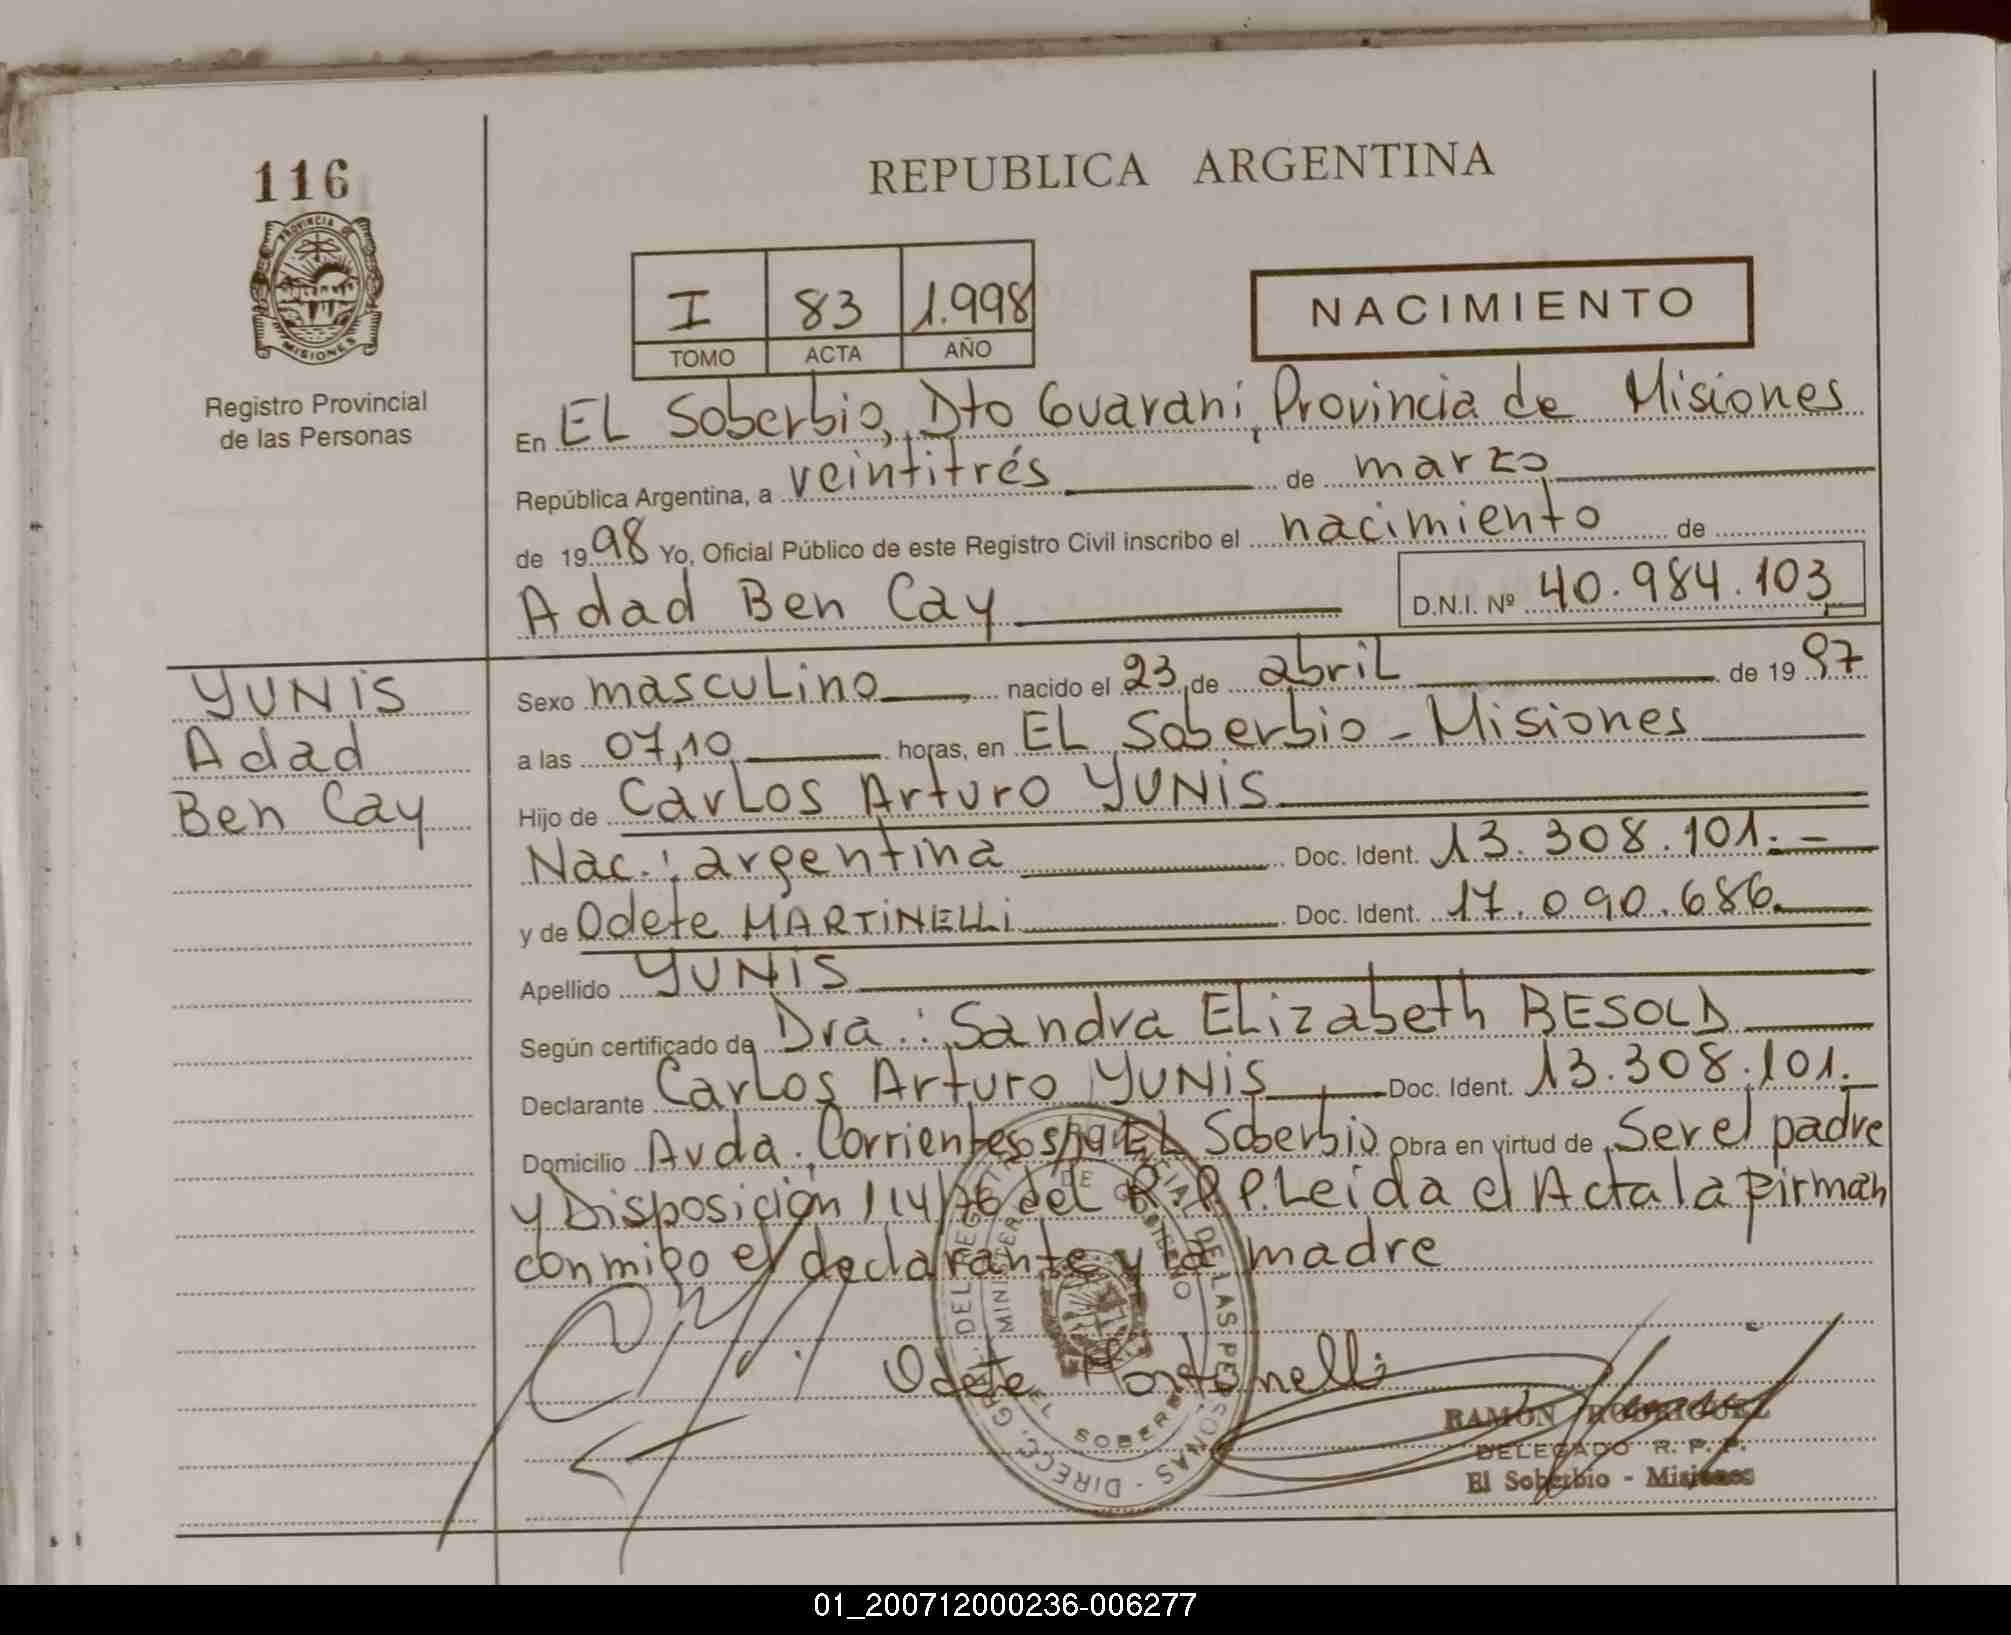 116
PROVINCIA DE
MISIONES
Registro Provincial
de las Personas
REPUBLICA ARGENTINA
I 83 1.998
TOMO ACTA AÑO
NACIMIENTO
En EL Soberbio, Dto Guarani, Provincia de Misiones
República Argentina, a veintitrés de marzo
de 1998 Yo, Oficial Público de este Registro Civil inscribo el nacimiento de
Adad Ben Cay D.N.I. Nº 40.984.103
YUNIS
Adad
Ben Cay
Sexo masculino nacido el 23 de abril de 1997
a las 07,10 horas, en EL Soberbio - Misiones
Hijo de Carlos Arturo YUNIS
Nac.: argentina Doc. Ident. 13.308.101.-
y de Odete MARTINELLI Doc. Ident. 17.090.686.
Apellido YUNIS
Según certificado de Dra.: Sandra Elizabeth BESOLD
Declarante Carlos Arturo YUNIS Doc. Ident. 13.308.101.
Domicilio Avda. Corrientes s/nº EL Soberbio Obra en virtud de Ser el padre
y Disposición 114/76 del R.P.P. Leída el Acta la firman
conmigo el declarante y la madre
Odete Martinelli
DIRECC. GRAL. DEL REGISTRO PROVINCIAL DE LAS PERSONAS
MINISTERIO DE GOBIERNO
EL SOBERBIO
RAMON RODRIGUEZ
DELEGADO R. P. P.
El Soberbio - Misiones
01_200712000236-006277